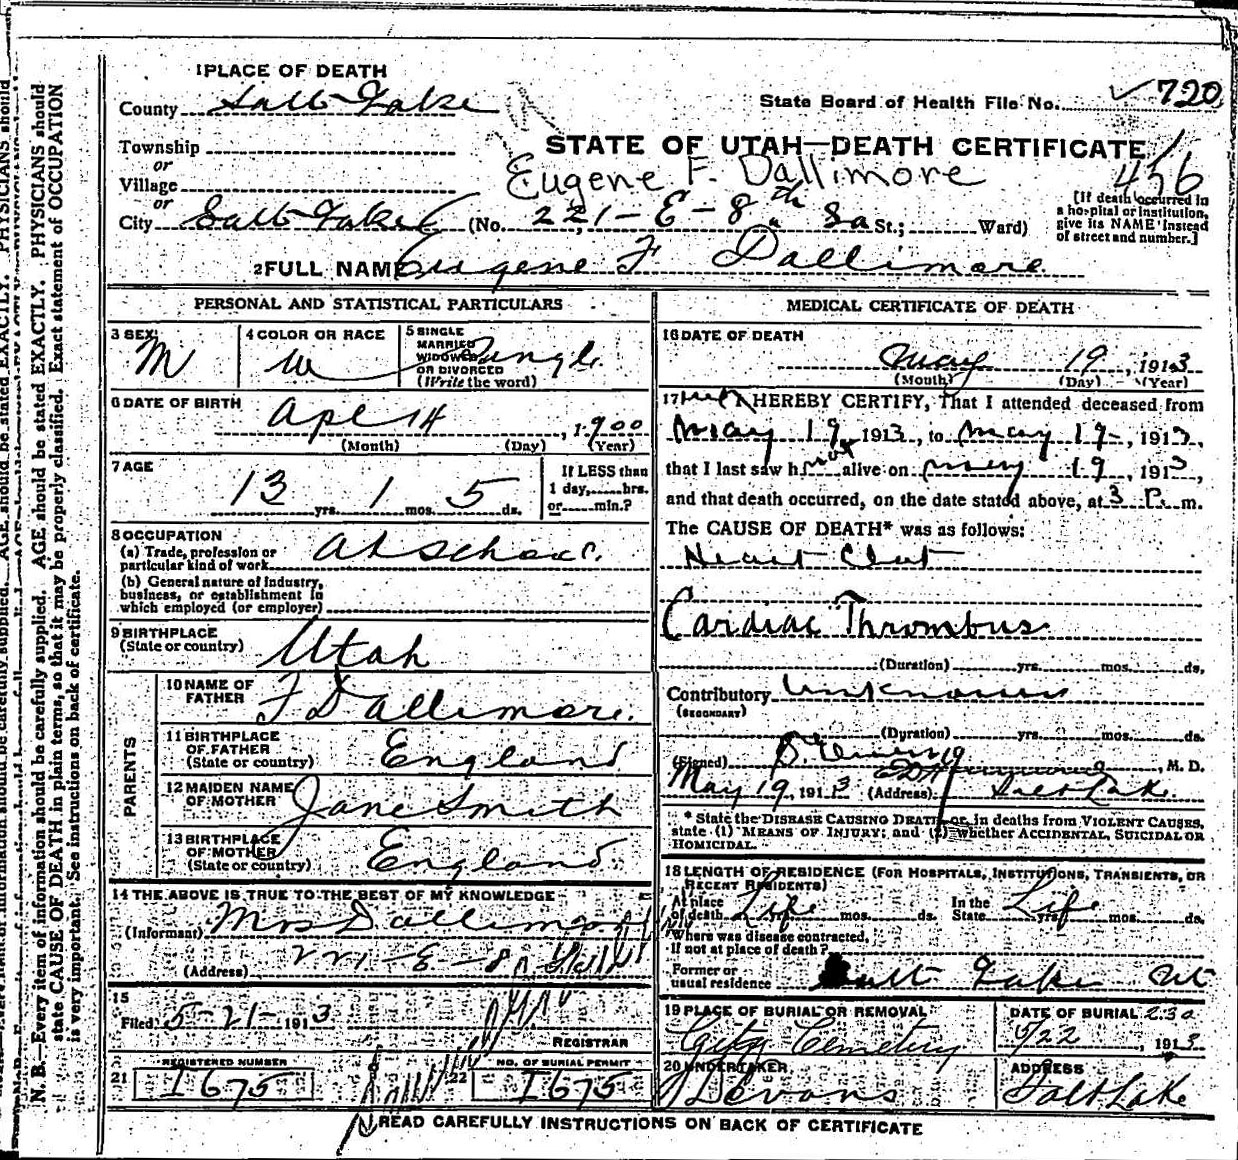 1 PLACE OF DEATH
County Salt Lake
State Board of Health File No. 720
Township
STATE OF UTAH—DEATH CERTIFICATE
or
Village
Eugene F. Dallimore
456
or
City Salt Lake (No. 221-E-8th So St.; Ward)
[If death occurred in a hospital or institution, give its NAME instead of street and number.]
2 FULL NAME Eugene F Dallimore
PERSONAL AND STATISTICAL PARTICULARS
3 SEX M
4 COLOR OR RACE W
5 SINGLE MARRIED WIDOWED OR DIVORCED (Write the word) Single
6 DATE OF BIRTH
Apl 14, 1900
(Month) (Day) (Year)
7 AGE
13 yrs. 1 mos. 5 ds.
If LESS than 1 day, hrs. or min.?
8 OCCUPATION
(a) Trade, profession or particular kind of work At School
(b) General nature of Industry, business, or establishment in which employed (or employer)
9 BIRTHPLACE (State or country) Utah
PARENTS
10 NAME OF FATHER F Dallimore
11 BIRTHPLACE OF FATHER (State or country) England
12 MAIDEN NAME OF MOTHER Jane Smith
13 BIRTHPLACE OF MOTHER (State or country) England
14 THE ABOVE IS TRUE TO THE BEST OF MY KNOWLEDGE
(Informant) Mrs Dallimore
(Address) 221-E-8
15
Filed 5-21-1913
REGISTRAR
REGISTERED NUMBER
21 1675
NO. OF BURIAL PERMIT
22 1675
MEDICAL CERTIFICATE OF DEATH
16 DATE OF DEATH
May 19, 1913
(Month) (Day) (Year)
17 I HEREBY CERTIFY, That I attended deceased from
May 19 1913, to May 19, 1913,
that I last saw h alive on May 19, 1913,
and that death occurred, on the date stated above, at 3 P. m.
The CAUSE OF DEATH* was as follows:
Heart Clot
Cardiac Thrombus
(Duration) yrs. mos. ds.
Contributory Unknown
(SECONDARY)
(Duration) yrs. mos. ds.
(Signed) , M. D.
May 19, 1913 (Address) Salt Lake
* State the DISEASE CAUSING DEATH or, in deaths from VIOLENT CAUSES, state (1) MEANS OF INJURY; and (2) whether ACCIDENTAL, SUICIDAL OR HOMICIDAL.
18 LENGTH OF RESIDENCE (FOR HOSPITALS, INSTITUTIONS, TRANSIENTS, OR RECENT RESIDENTS)
At place of death Life mos. ds. In the State Life yrs. mos. ds.
Where was disease contracted, If not at place of death?
Former or usual residence Salt Lake Ut
19 PLACE OF BURIAL OR REMOVAL
City Cemetery
DATE OF BURIAL 230
5/22, 1913
20 UNDERTAKER
Evans
ADDRESS
Salt Lake
READ CAREFULLY INSTRUCTIONS ON BACK OF CERTIFICATE
N. B.—Every item of information should be carefully supplied. AGE should be stated EXACTLY. PHYSICIANS should
state CAUSE OF DEATH in plain terms, so that it may be properly classified. Exact statement of OCCUPATION
is very important. See instructions on back of certificate.